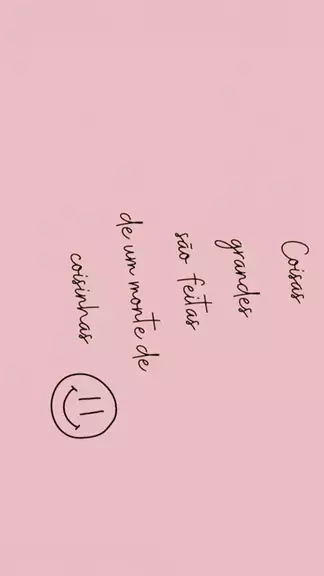 Coisas
grandes
são feitas
de um monte de
coisinhas